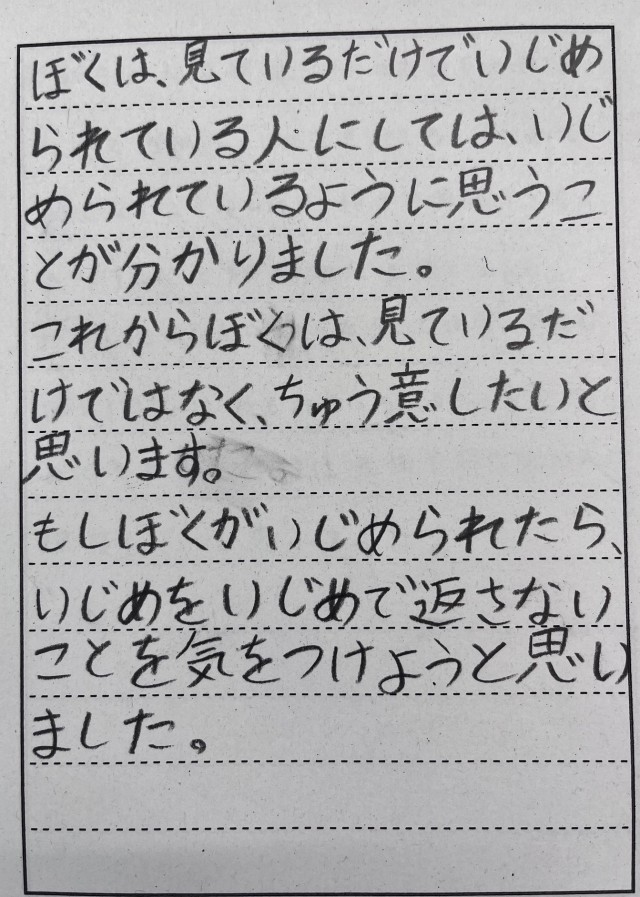 ぼくは、見ているだけでいじめ
られている人にしては、いじ
められているように思うこ
とが分かりました。
これからぼくは、見ているだ
けではなく、ちゅう意したいと
思います。
もしぼくがいじめられたら、
いじめをいじめで返さない
ことを気をつけようと思い
ました。